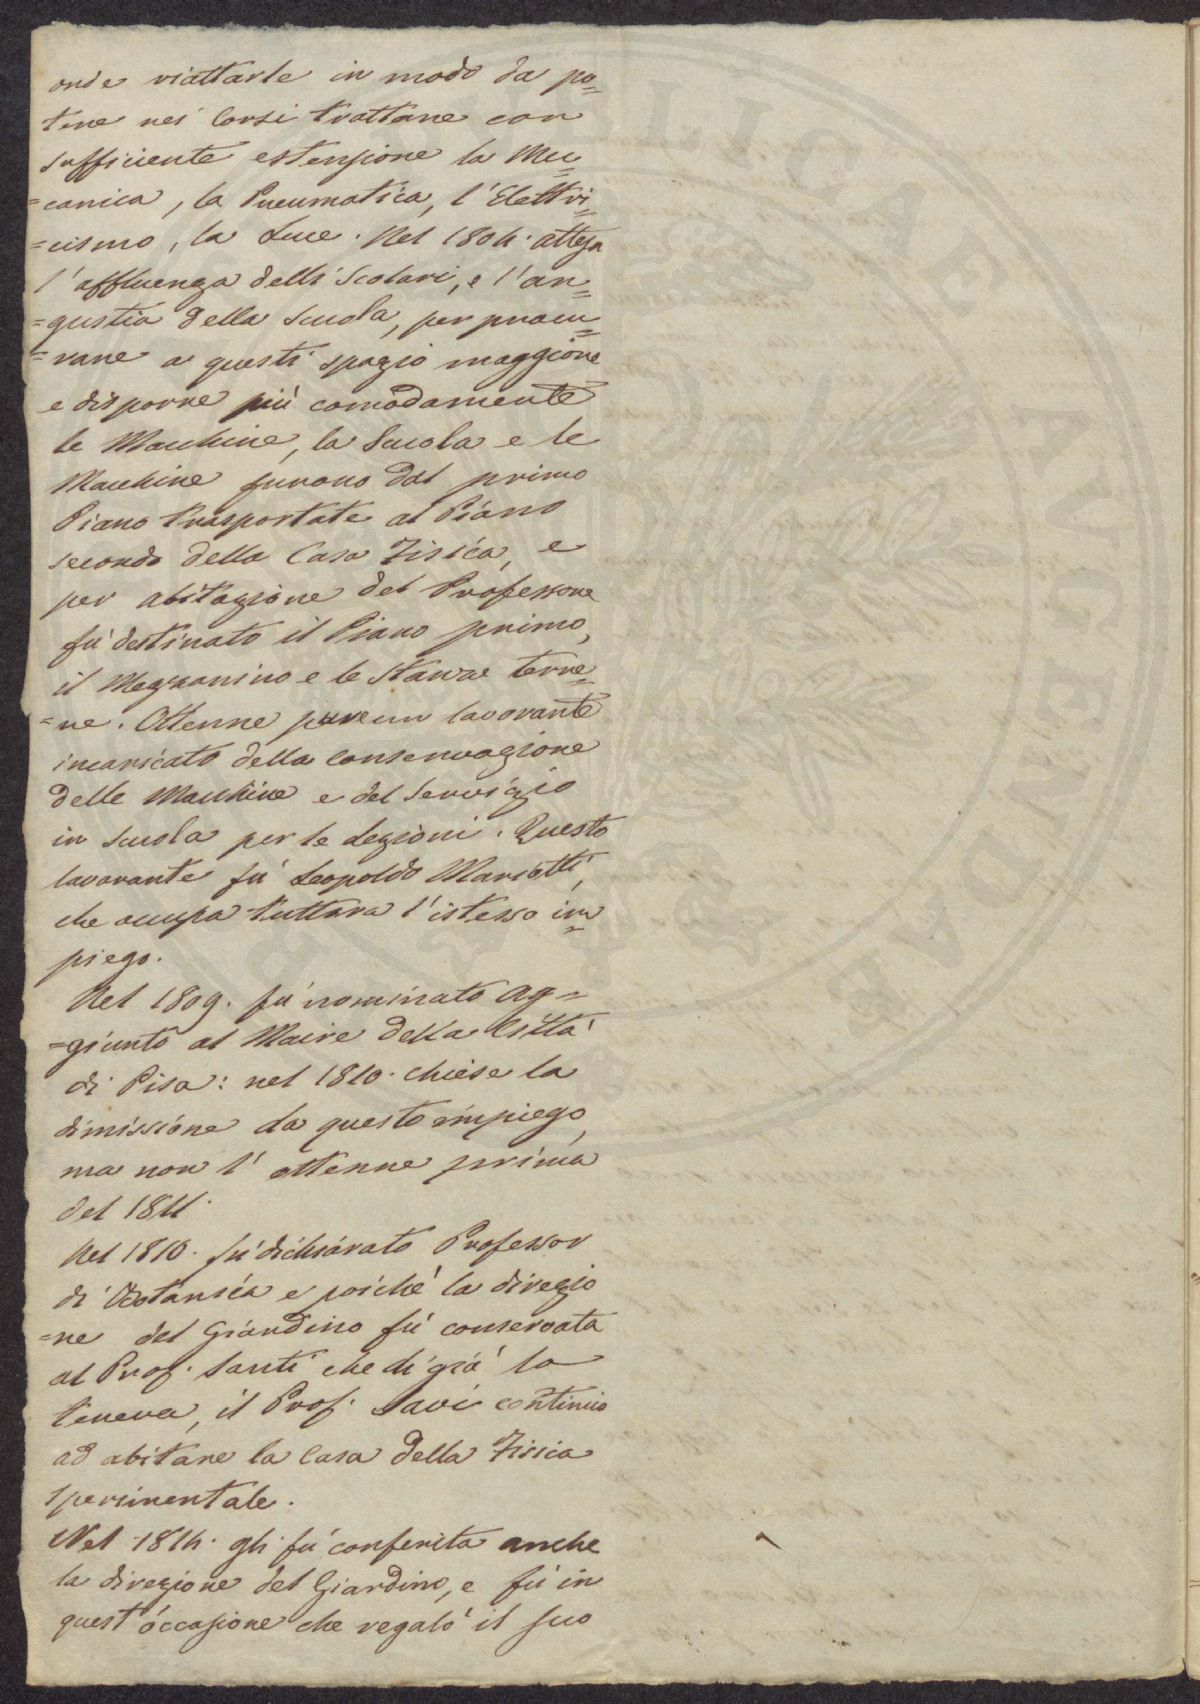 onde riattarle in modo da po=
tere nei Corsi trattare con
sufficiente estensione la Mec=
=canica, la Pneumatica, l'Elettri=
=cismo, la Luce. Nel 1804. attesa
l'affluenza delli Scolari, e l'an=
=gustia della Scuola, per procu=
=rare a questi spazio maggiore
e disporre più comodamente
le Macchine, la Scuola e le
Macchine furono dal primo
Piano trasportate al Piano
secondo della Casa Fisica, e
per abitazione del Professore
fù destinato il Piano primo,
il Mezzanino e le Stanze terre=
=ne. Ottenne pure un lavorante
incaricato della conservazione
delle Macchine e del Servizio
in Scuola per le Lezioni. Questo
lavorante fù Leopoldo Mariotti,
che occupa tuttora l'istesso im=
piego.
Nel 1809. fù nominato Ag=
=giunto al Maire della Città
di Pisa: nel 1810. chiese la
dimissione da questo impiego,
ma non l'ottenne prima
del 1811.
Nel 1810. fù dichiarato Professor
di Botanica e poichè la direzio
=ne del Giardino fù conservata
al Prof. Santi che di già la
teneva, il Prof. Savi continuò
ad abitare la Casa della Fisica
Sperimentale.
Nel 1814. gli fù conferita anche
la direzione del Giardino, e fù in
quest'occasione che regalò il suo
PUBLICAE